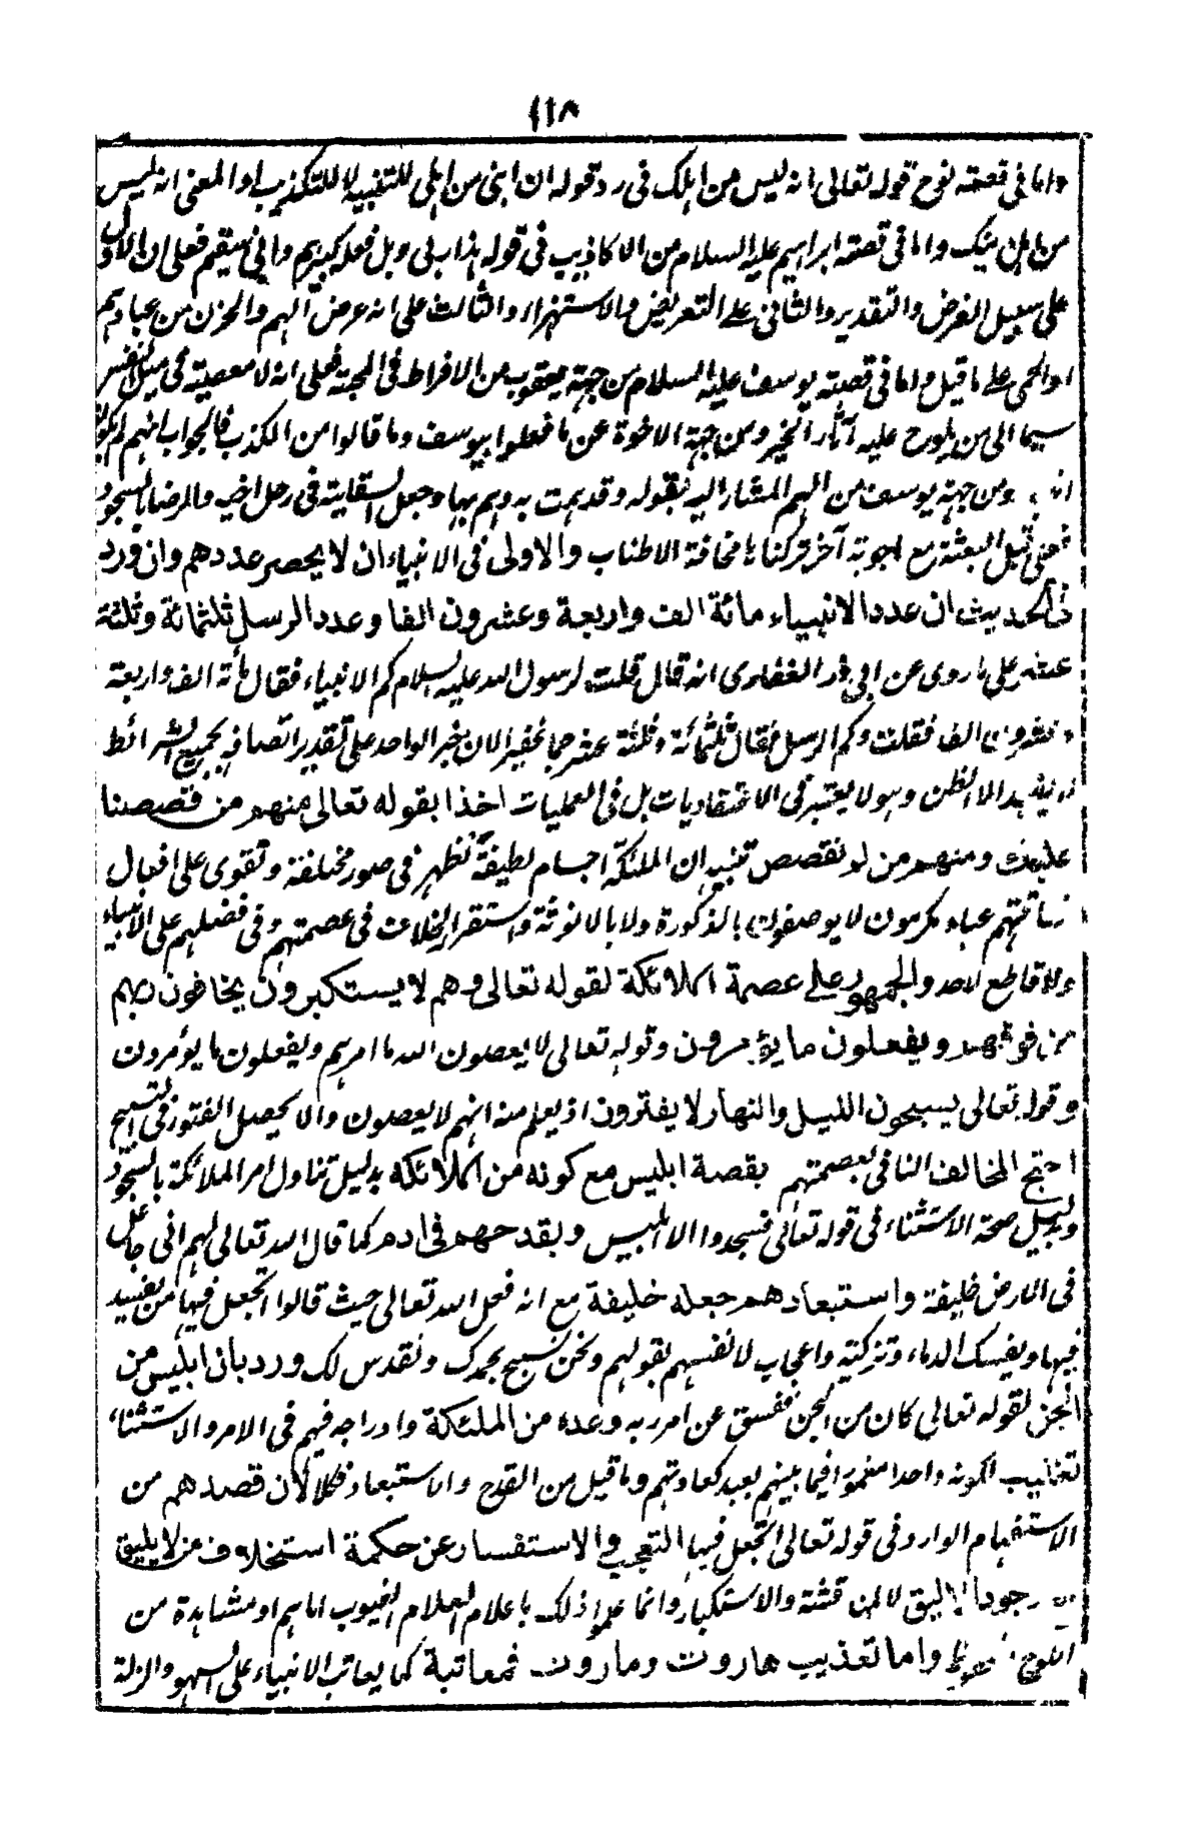 ١١٨
واما فى قصة نوح قوله تعالى انه ليس من اهلك فى رد قوله ان ابنى من اهلى للتنبيه لا للتكذيب او المعنى انه ليس
من اهل دينك واما فى قصة ابراهيم عليه السلام من الاكاذيب فى قوله هذا ربى وبل فعله كبيرهم وانى سقيم فعلى ان الاول
على سبيل الفرض والتقدير والثانى على التعريض والاستهزاء والثالث على انه عرض الهم والحزن من عبادتهم
او الحمى على ما قيل واما فى قصة يوسف عليه السلام من جهة يعقوب من الافراط فى المحبة فعلى انه لا معصية فى ميل النفس
سيما الى من يلوح عليه آثار الخير ومن جهة الاخوة عن ما فعلوا بيوسف وما قالوا من الكذب فالجواب انهم لم يكونوا
ومن جهة يوسف من الهم المشار اليه بقوله ولقد همت به وهم بها وجعل السقاية فى رحل اخيه والرضا بالسجود
فعلى قبل البعثة مع اجوبة آخر تركناها مخافة الاطناب والاولى فى الانبياء ان لا يحصر عددهم وان ورد
فى الحديث ان عدد الانبياء مائة الف واربعة وعشرون الفا وعدد الرسل ثلثمائة وثلثة
عشر على ما روى عن ابى ذر الغفارى انه قال قلت لرسول الله عليه السلام كم الانبياء فقال مأة الف واربعة
وعشرون الف فقلت وكم الرسل فقال ثلثمائة وثلثة عشر جما غفيرا لان خبر الواحد على تقدير اتصافه بجميع الشرائط
لا يفيد الا الظن وهو لا يعتبر فى الاعتقاديات بل فى العمليات اخذا بقوله تعالى منهم من قصصنا
عليك ومنهم من لم نقصص تنبيه ان الملئكة اجسام لطيفة تظهر فى صور مختلفة وتقوى على افعال
شاقة هم عباد مكرمون لا يوصفون بالذكورة ولا بالانوثة واستقر الخلاف فى عصمتهم وفى فضلهم على الانبياء
ولا قاطع لاحد والجمهور على عصمة الملائكة لقوله تعالى وهم لا يستكبرون يخافون ربهم
من فوقهم ويفعلون ما يؤمرون وقوله تعالى لا يعصون الله ما امرهم ويفعلون ما يؤمرون
وقوله تعالى يسبحون الليل والنهار لا يفترون اذ يعلم منه انهم لا يعصون والا يحصل الفتور فى التسبيح
احتج المخالف النافى بعصمتهم بقصة ابليس مع كونه من الملائكة بدليل تناول امر الملائكة بالسجود
وبدليل صحة الاستثناء فى قوله تعالى فسجدوا الا ابليس وبقدحهم فى ادم كما قال الله تعالى لهم انى جاعل
فى الارض خليفة واستبعادهم جعله خليفة مع انه فعل الله تعالى حيث قالوا اتجعل فيها من يفسد
فيها ويفسك الدماء وتزكية واعجاب لانفسهم بقولهم ونحن نسبح بحمدك ونقدس لك ورد بان ابليس من
الجن لقوله تعالى كان من الجن ففسق عن امر ربه وعده من الملئكة وادراجه فيهم فى الامر والاستثناء
لتغليب لكونه واحدا مغمورا فيما بينهم يعبد كعادتهم وما قيل من القدح والاستبعاد فكلا لأن قصدهم من
الاستفهام الوارد فى قوله تعالى اتجعل فيها التعجب والاستفسار عن حكمة استخلاف من لا يليق
وجود الاليق لا المناقشة والاستكبار وانما علموا ذلك باعلام العلام الغيوب اياهم او مشاهدة من
اللوح المحفوظ واما تعذيب هاروت وماروت فمعاتبة كما يعاتب الانبياء على السهو والزلة